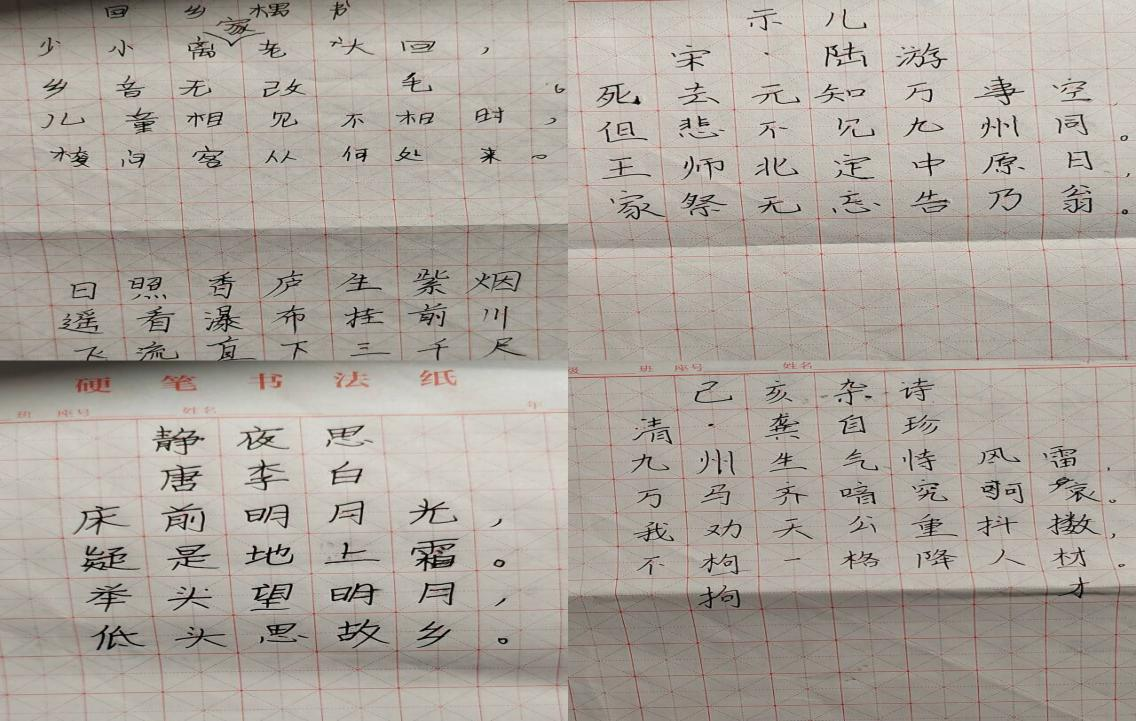 回乡偶书
家
少小离老大回，
乡音无改 毛 。
儿童相见不相时，
梭问宫从何处来。
日照香庐生紫烟
遥看瀑布挂前川
飞流直下三千尺
示儿
宋·陆游
死去元知万事空
但悲不见九州同。
王师北定中原日，
家祭无忘告乃翁。
硬笔书法纸
班 座号 姓名 年
静夜思
唐李白
床前明月光，
疑是地上霜。
举头望明月，
低头思故乡。
级 班 座号 姓名
己亥杂诗
清·龚自珍
九州生气恃风雷，
万马齐喑究可哀。
我劝天公重抖擞，
不枸一格降人材。
拘 才